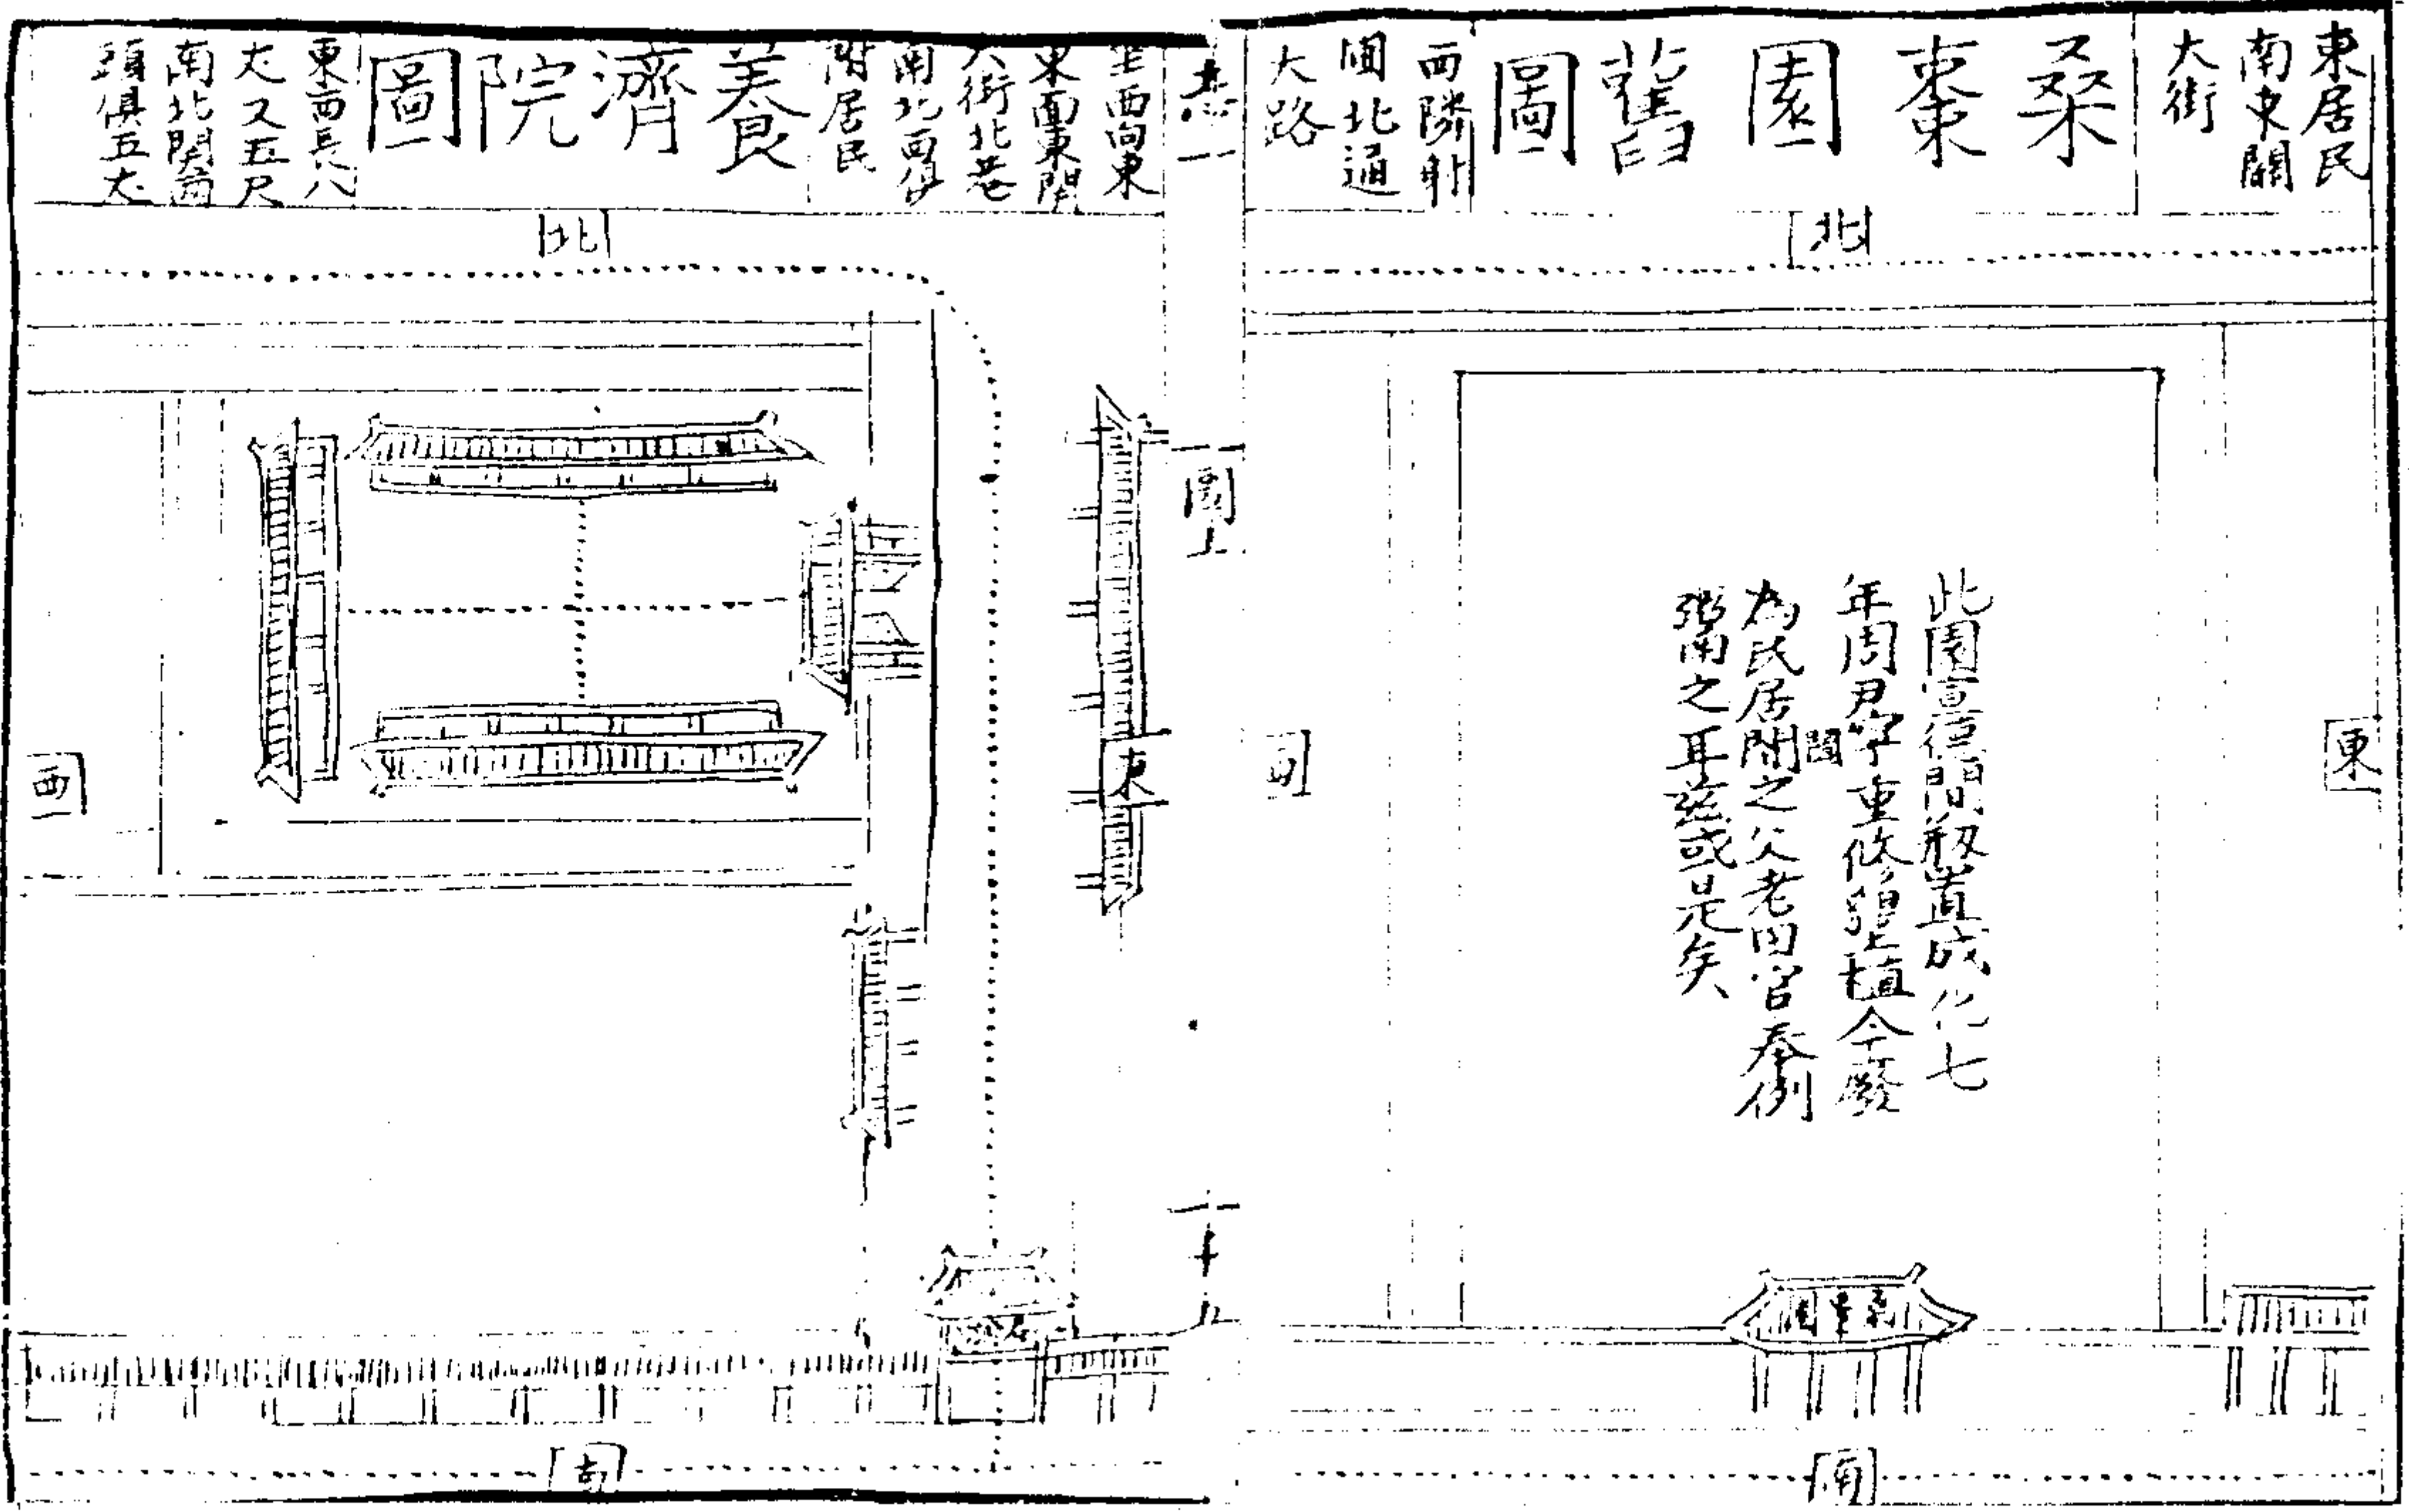 東居民
南東關
大街
桑棗園舊圖
西隣射
圃北通
大路
北
東
此園宣德間剏置成化七
年周尹寧重修增植今廢
為民居閒之父老因官奉例
鬻之耳茲或是矣
南
志
圖上
十五
坐西向東
東面東關
大街北巷
南北西俱
附居民
養濟院圖
東西長八
丈又五尺
南北闊兩
頭俱五丈
北
東
西
南